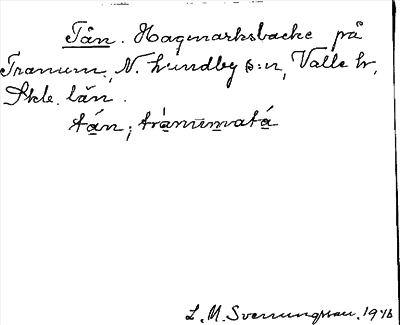 Tån. Hagmarksbacke på
Tranum, N. Lundby s:n, Valle hr,
Skb. län.
tán; tránumatá
L. M. Svenungsson. 1946